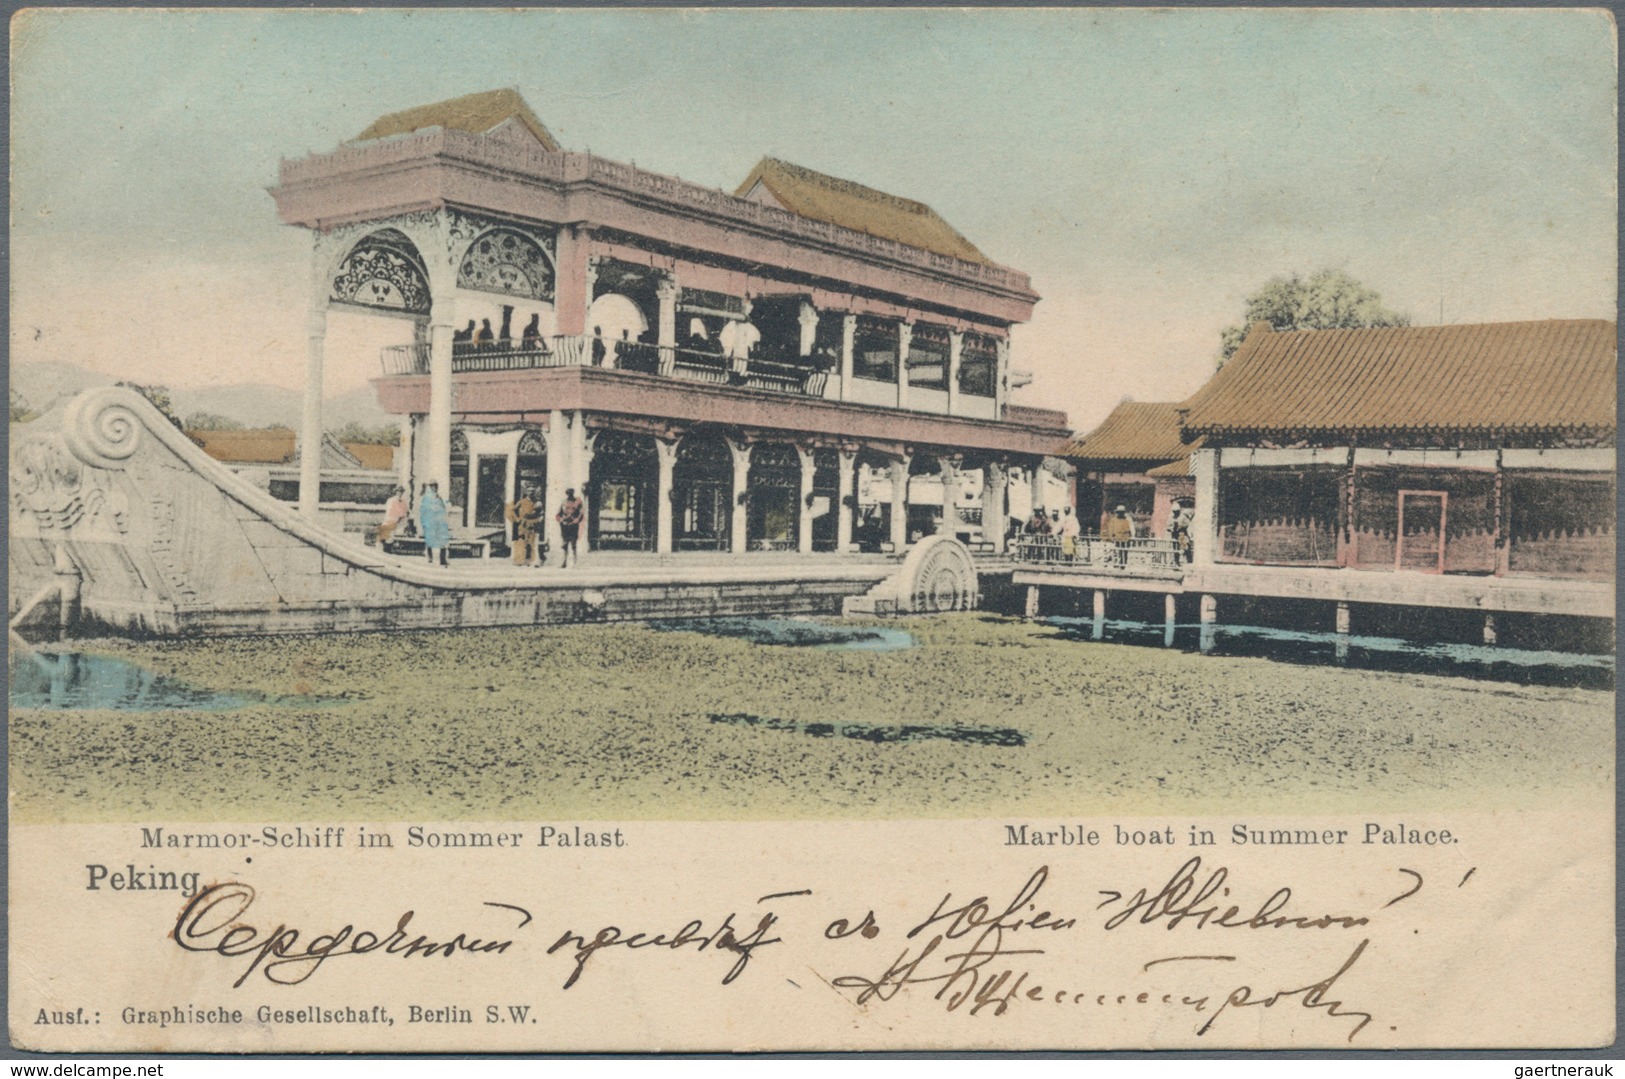 Marmor-Schiff im Sommer Palast.
Marble boat in Summer Palace.
Peking.
Сердечный привѣтъ съ
Ausf.: Graphische Gesellschaft, Berlin S.W.
© www.delcampe.net
gaertnerauk